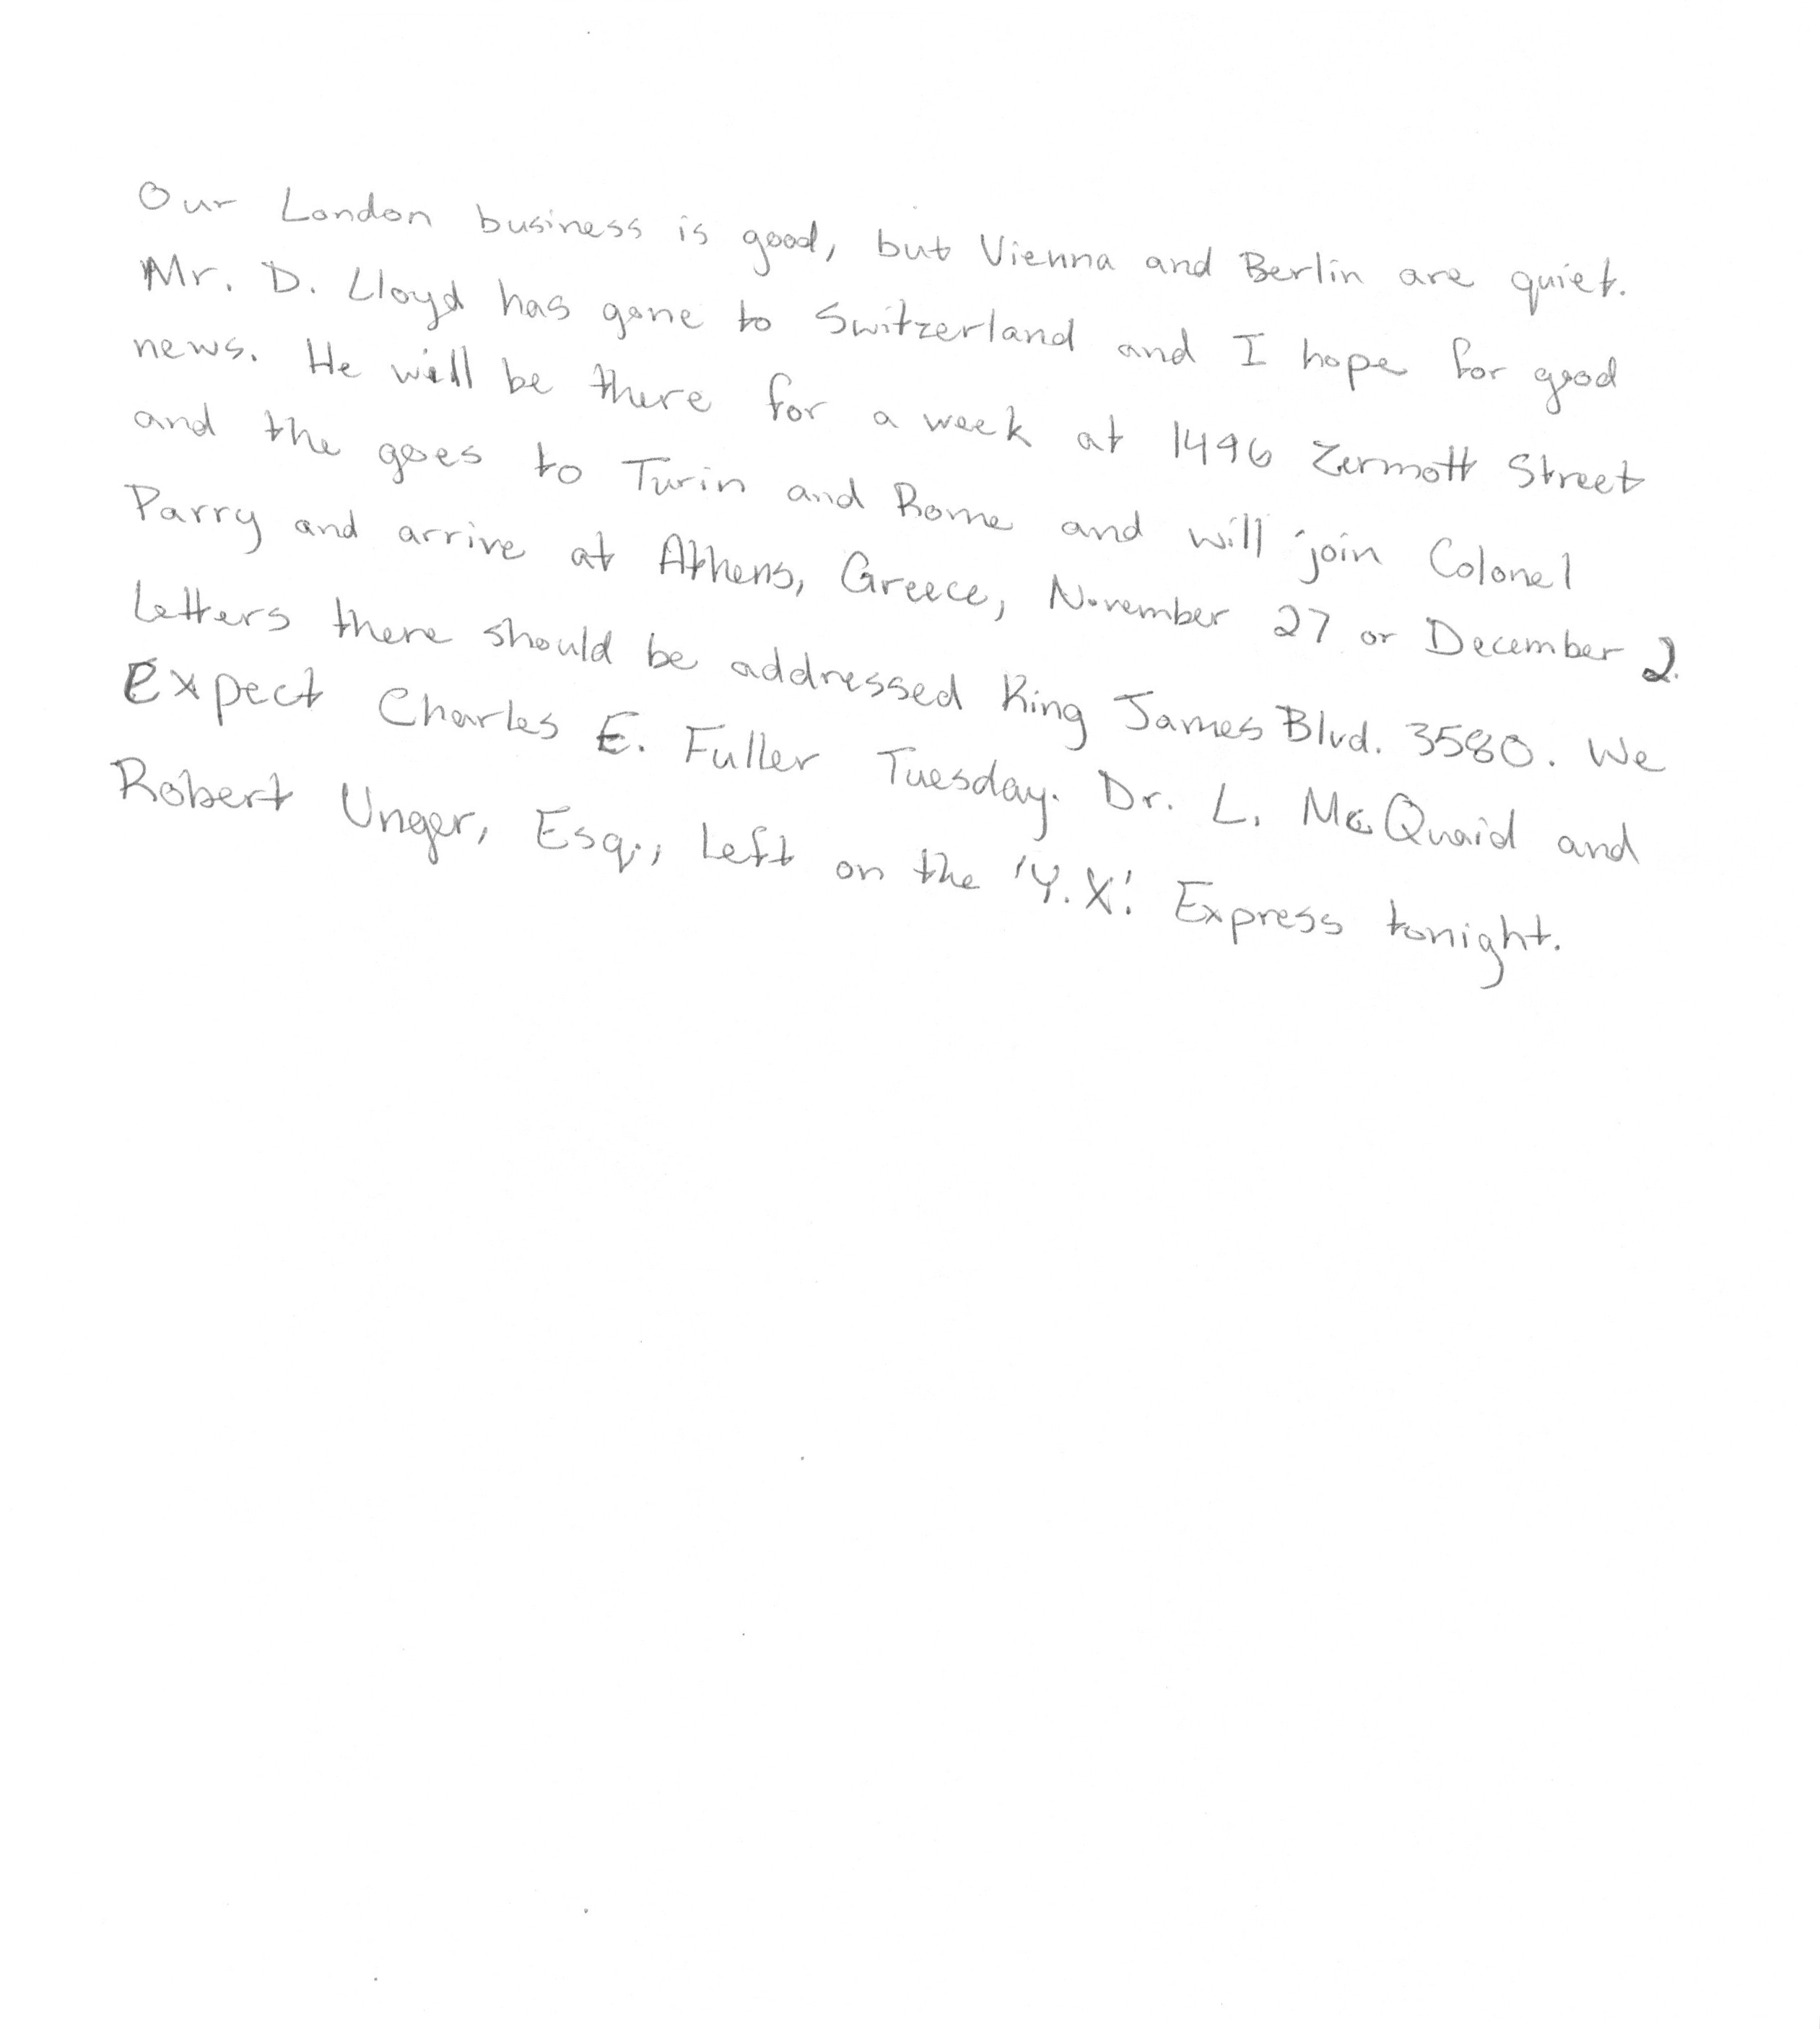 Our London business is good, but Vienna and Berlin are quiet.
Mr. D. Lloyd has gone to Switzerland and I hope for good
news. He will be there for a week at 1496 Zermott Street
and the goes to Turin and Rome and will join Colonel
Parry and arrive at Athens, Greece, November 27 or December 2.
Letters there should be addressed King James Blvd. 3580. We
Expect Charles E. Fuller Tuesday. Dr. L. McQuaid and
Robert Unger, Esq., Left on the 'Y.X.' Express tonight.